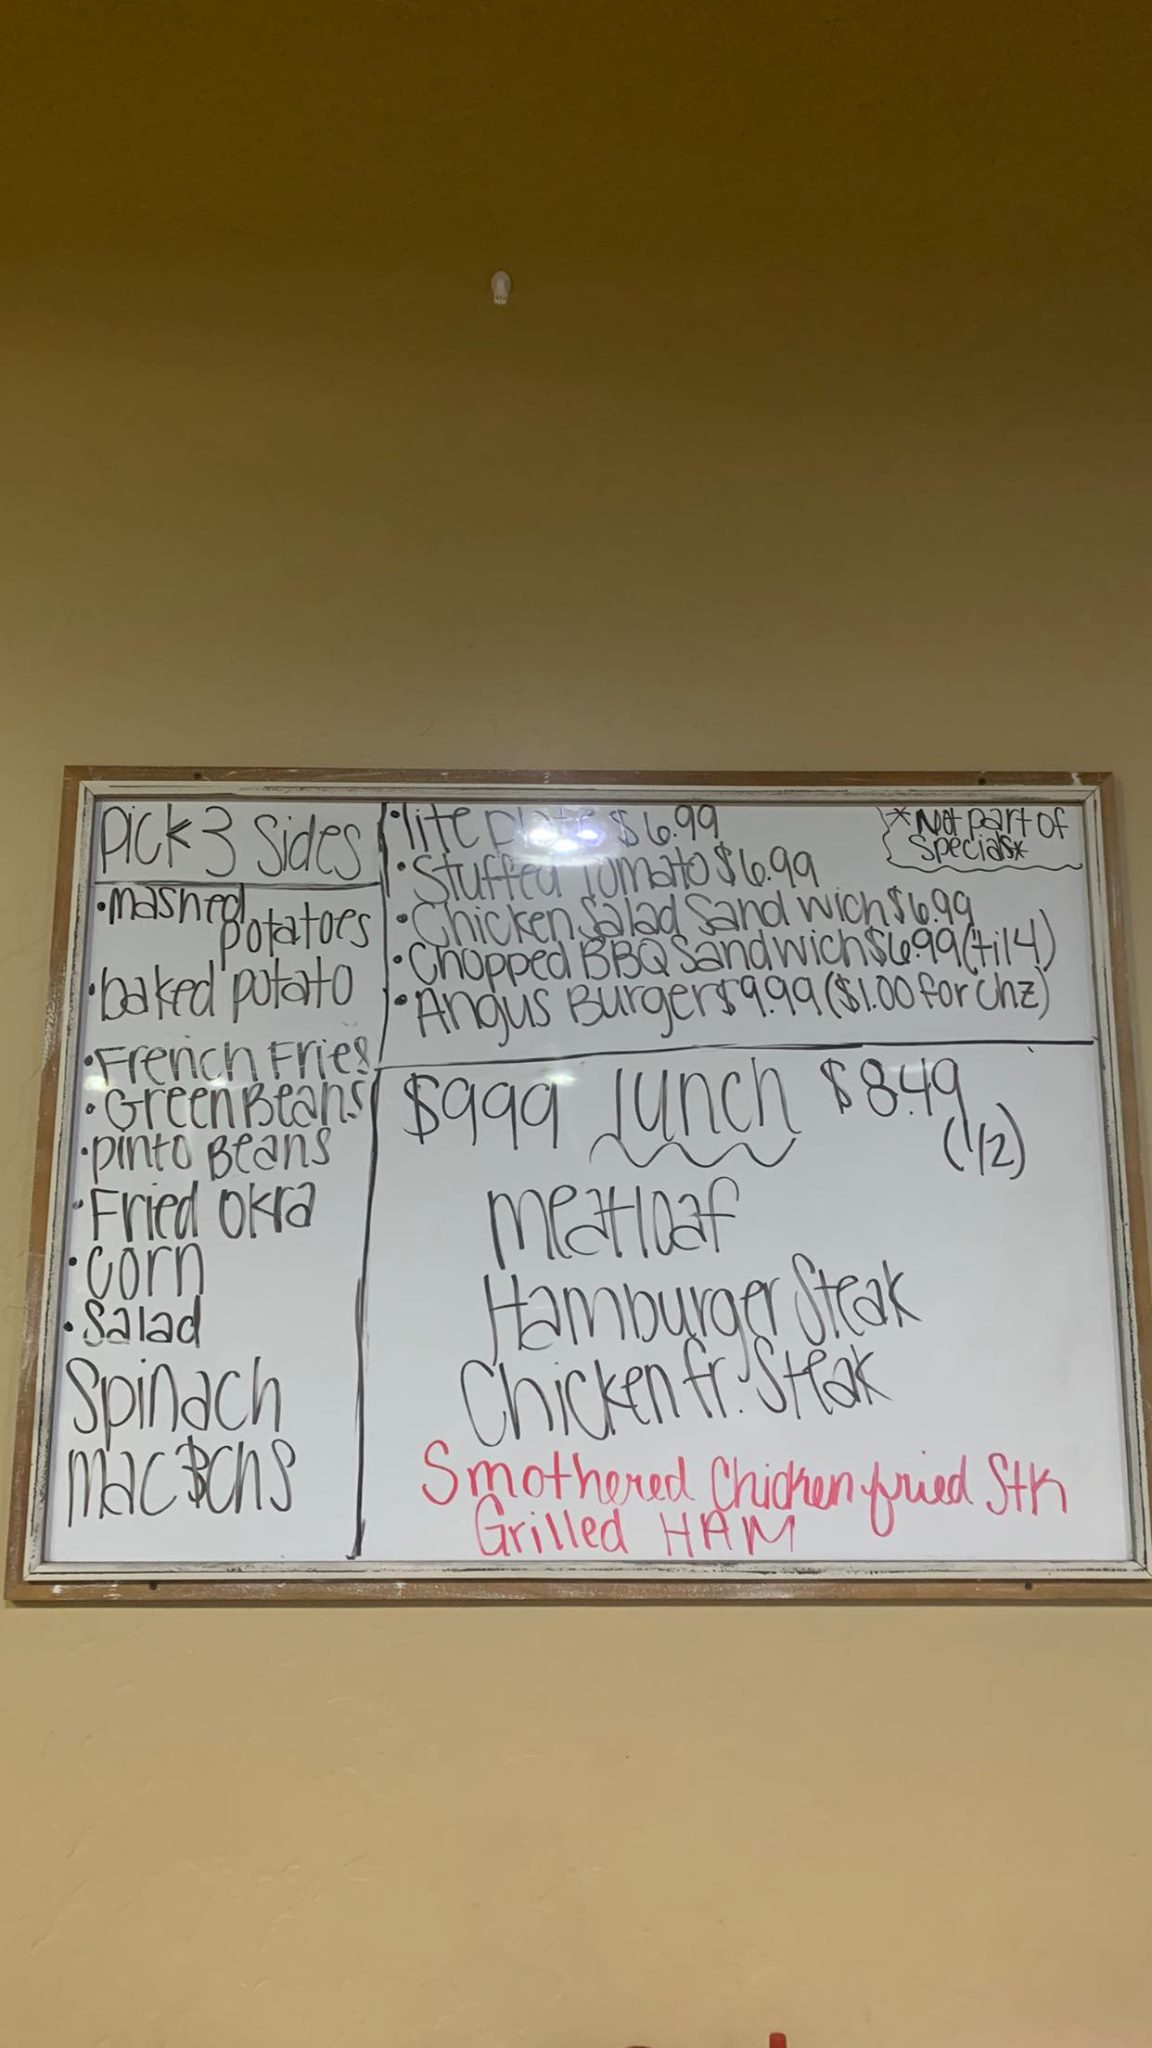 Pick 3 Sides
• mashed
potatoes
• baked potato
• French Fries
• Green Beans
• pinto Beans
• Fried Okra
• Corn
• Salad
Spinach
mac $ chs
• lite plate $6.99
• Stuffed Tomato $6.99
• Chicken Salad Sandwich $6.99
• Chopped BBQ Sandwich $6.99 (til 4)
• Angus Burger $9.99 ($1.00 for chz)
*Not part of
Specials*
$999 lunch $8.49
(1/2)
meatloaf
Hamburger Steak
Chicken fr. Steak
Smothered Chicken fried Stk
Grilled HAM